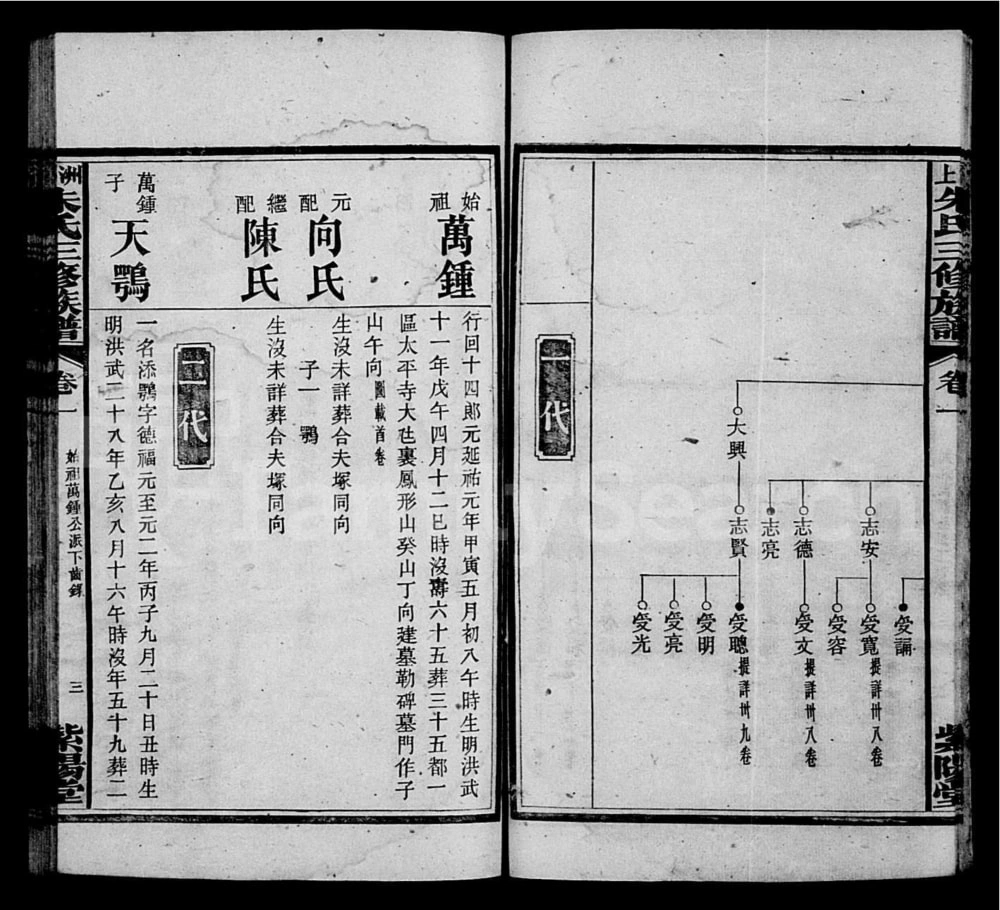 上朱氏三修族譜
卷一
紫陽堂
大興
志安
志德
志亮
志賢
受誦
受寬 提詳卅八卷
受容
受文 提詳卅八卷
受聰 提詳卅九卷
受明
受亮
受光
一代
始祖 萬鍾
行回十四郎元延祐元年甲寅五月初八午時生明洪武
十一年戊午四月十二巳時沒壽六十五葬三十五都一
區太平寺大㘰裏鳳形山癸山丁向建墓勒碑墓門作子
山午向圖載首卷
元配 向氏
生沒未詳葬合夫塚同向
子一 鶚
繼配 陳氏
生沒未詳葬合夫塚同向
二代
萬鍾子 天鶚
一名添鶚字德福元至元二年丙子九月二十日丑時生
明洪武二十八年乙亥八月十六午時沒年五十九葬二
洲朱氏三修族譜
卷一
始祖萬鍾公派下齒錄
三
紫陽堂